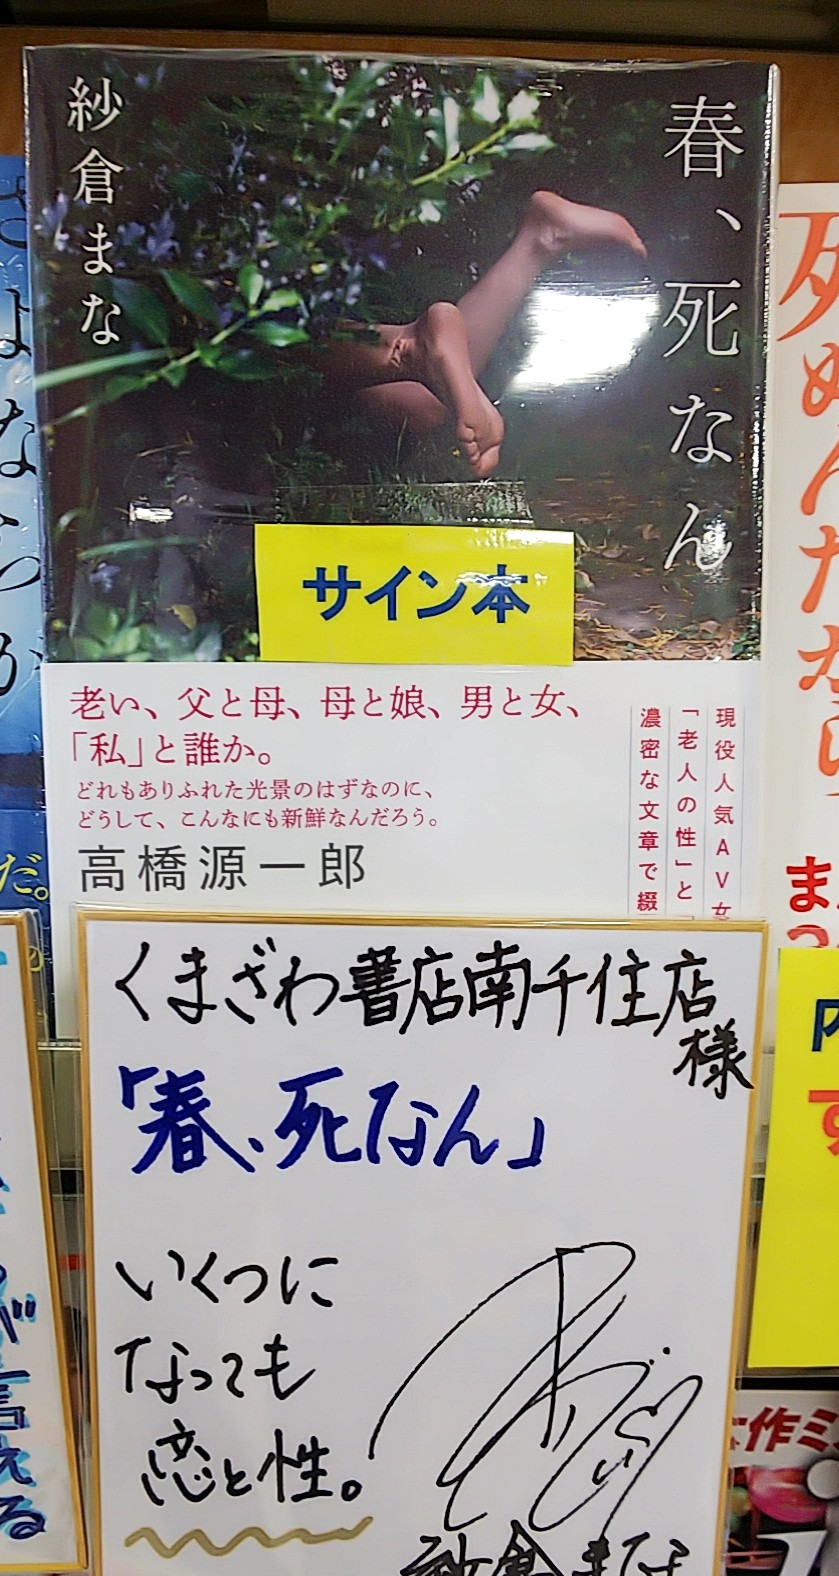 紗倉まな
春、死なん
サイン本
老い、父と母、母と娘、男と女、
「私」と誰か。
どれもありふれた光景のはずなのに、
どうして、こんなにも新鮮なんだろう。
高橋源一郎
現役人気AV女
「老人の性」と「
濃密な文章で綴
くまざわ書店南千住店
様
「春、死なん」
いくつに
なっても
恋と性。
紗倉まな
さよならが
だ。
死ぬんだから
ま
が言える
内
す
作ミ